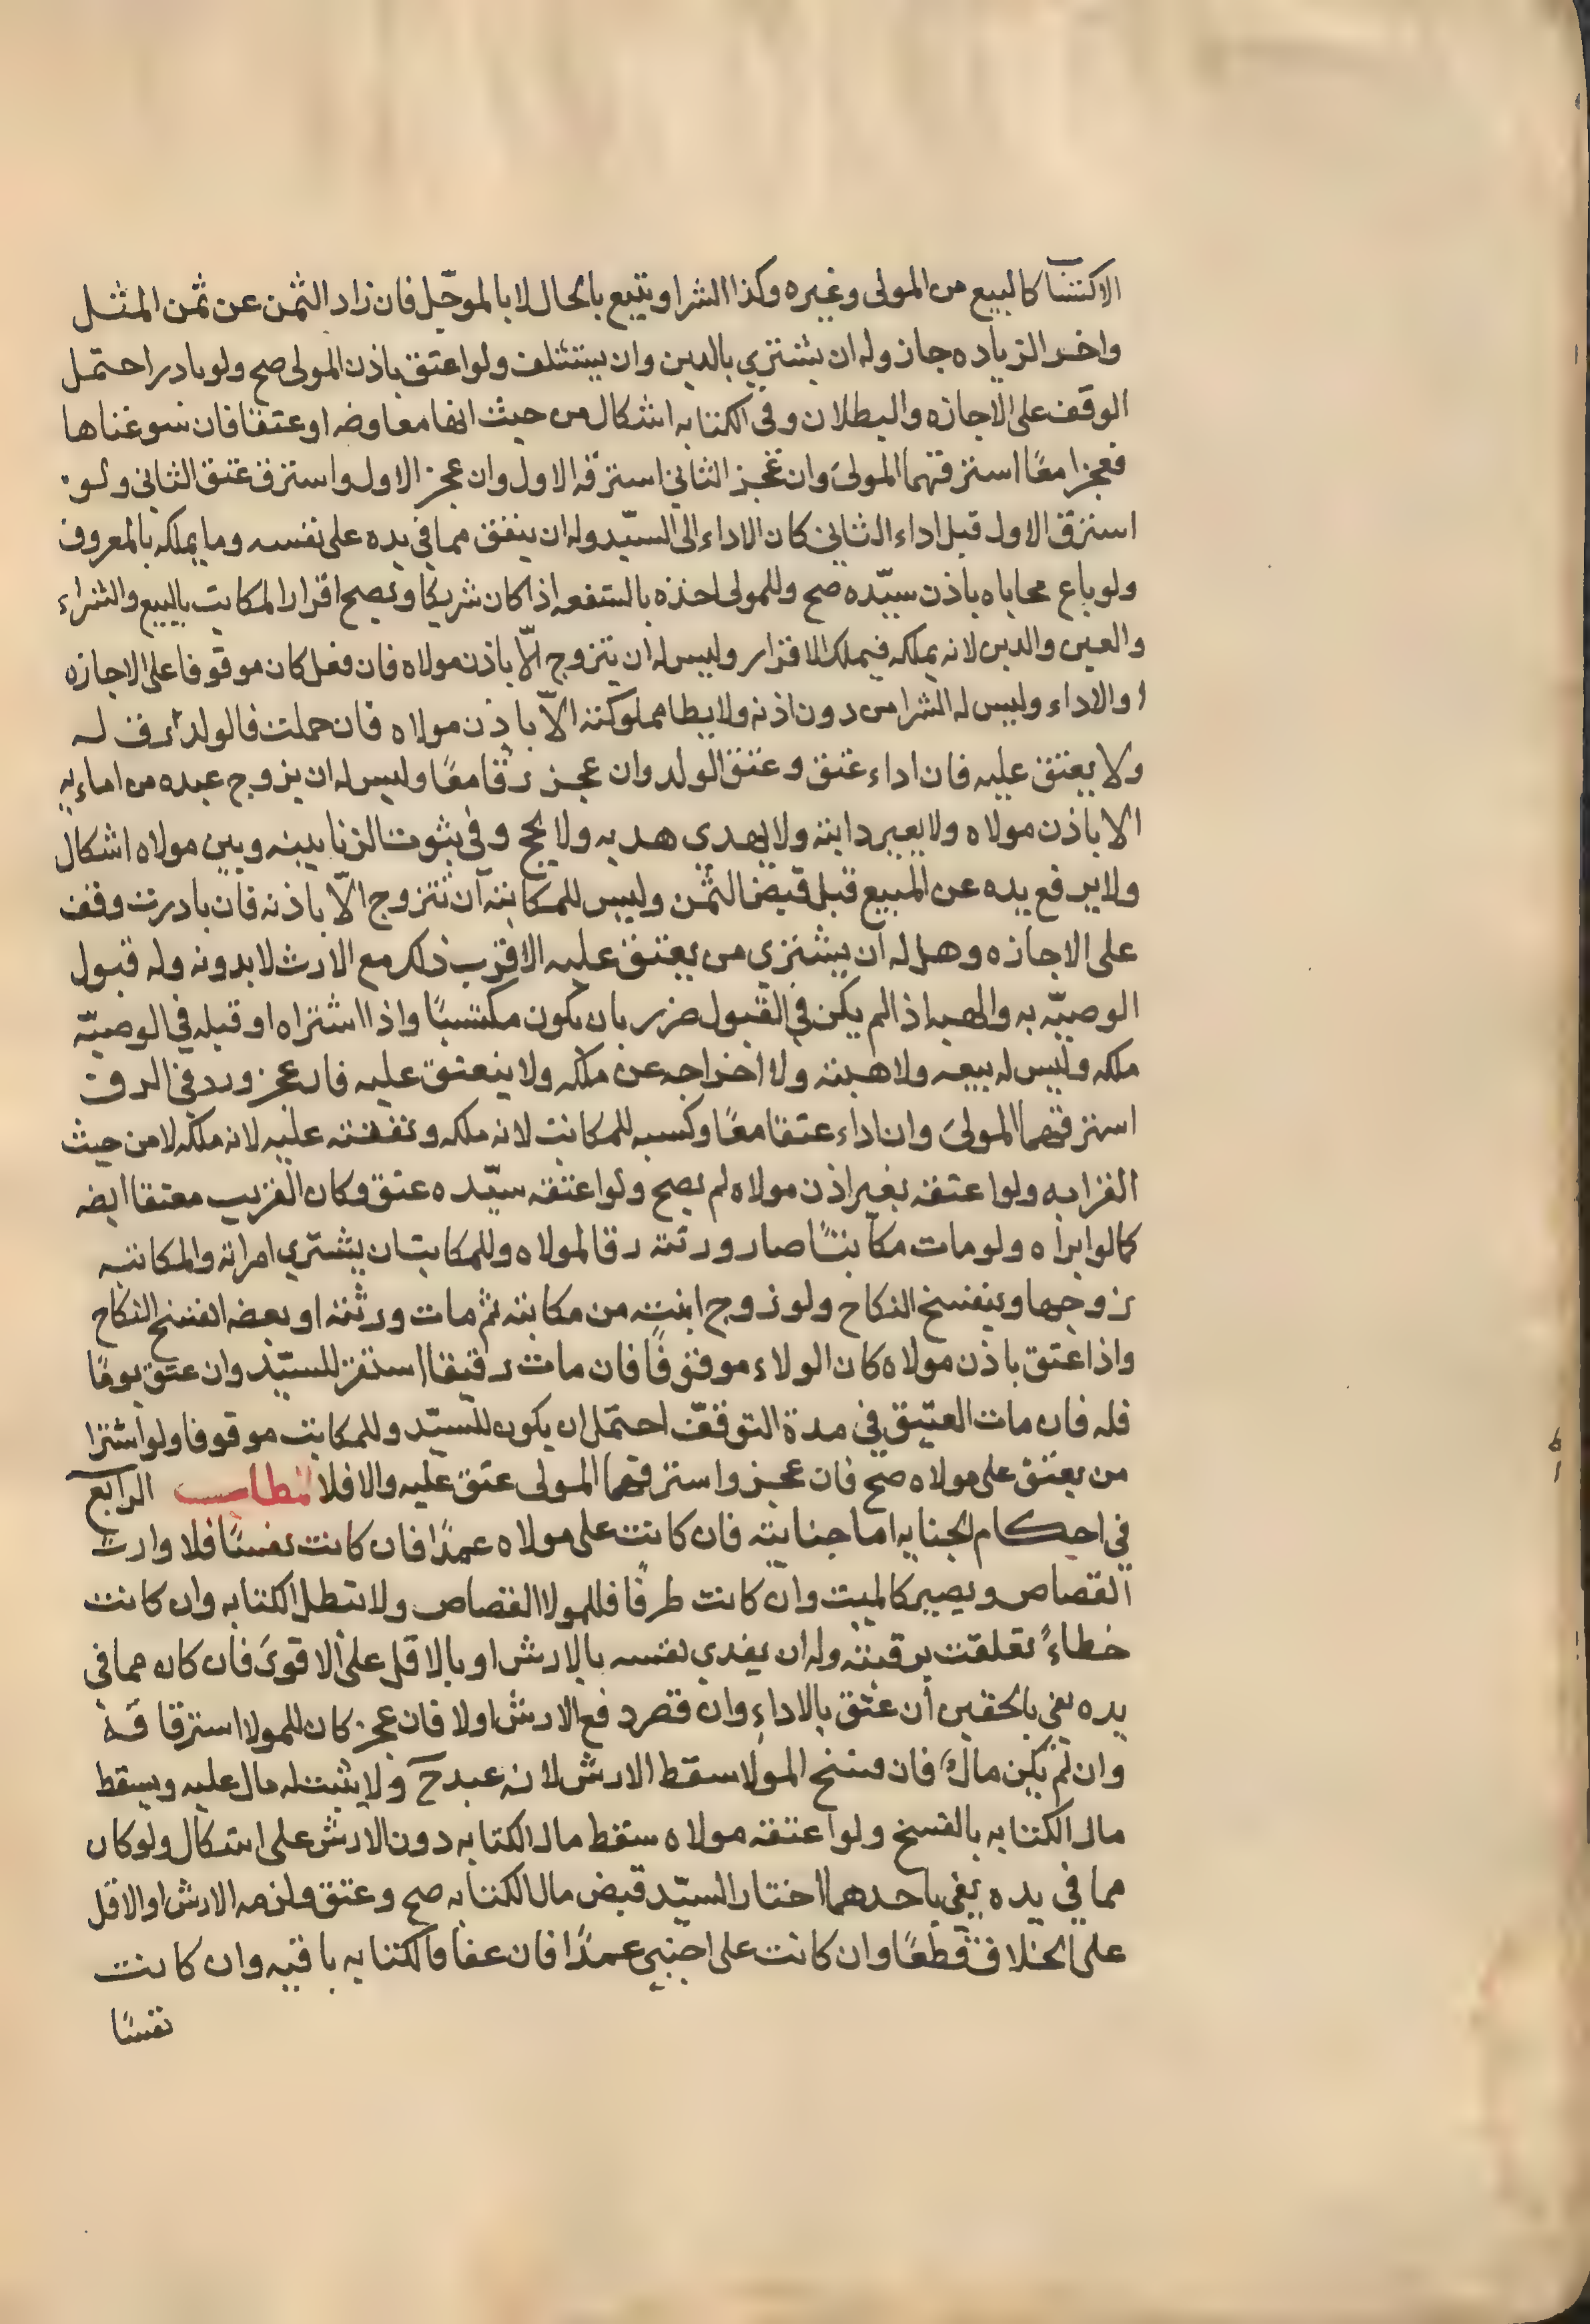 الاكتسا كالبيع من المولى وغيره وكذا الشرا ويبيع بالحال لا بالموجّل فان زاد الثمن عن ثمن المثل
واخر الزياده جاز وله ان يشتري بالدين وان يستسلف ولو اعتق باذن المولى صح ولو بادر احتمل
الوقف على الاجازه والبطلان وفي الكتابه اشكال من حيث انها معاوضه او عتقا فان سوغناها
فعجزا معًا استرقهما المولى وان عجز الثاني استرقه الاول وان عجز الاول واسترق عتق الثاني ولو
استرق الاول قبل اداء الثاني كان الاداء الى السيّد وله ان ينفق مما في يده على نفسه وما يملكه بالمعروف
ولو باع محاباه باذن سيّده صح وللمولى اخذه بالشفعه اذا كان شريكا ويصح اقرار المكاتب بالبيع والشراء
والعين والدين لانه يملكه فيملك الاقرار وليس له ان يتزوج الّا باذن مولاه فان فعل كان موقوفا على الاجازه
او الاداء وليس له الشرا من دون اذنه ولا يطا مملوكته الّا باذن مولاه فان حملت فالولد رق له
ولا يعتق عليه فان اداء عتق وعتق الولد وان عجز رقا معًا وليس له ان يزوج عبده من امائه
الا باذن مولاه ولا يعير دابته ولا يهدى هديه ولا يحج وفي ثبوت الربا بينه وبين مولاه اشكال
ولا يرفع يده عن المبيع قبل قبض الثمن وليس للمكاتبه ان تتزوج الّا باذنه فان بادرت وقف
على الاجازه وهل له ان يشتري من يعتق عليه الاقرب ذلك مع الاذن لا بدونه وله قبول
الوصيّه به والهبه اذا لم يكن في القبول ضرر بان يكون مكتسبًا واذا اشتراه او قبله في الوصيّه
ملكه وليس له بيعه ولا هبته ولا اخراجه عن ملكه ولا ينعتق عليه فان عجز ورد في الرق
استرقهما المولى وان اداء عتقا معًا وكسبه للمكاتب لانه ملكه ونفقته عليه لانه ملكه لا من حيث
القرابه ولو اعتقه بغير اذن مولاه لم يصح ولو اعتقه سيّده عتق وكان القريب معتقا ايضه
كما لو ابراه ولو مات مكاتبًا صار ورثته رقا لمولاه وللمكاتب ان يشتري امراته والمكاتبه
زوجها وينفسخ النكاح ولو زوج ابنته من مكاتبه ثم مات ورثته او بعضه انفسخ النكاح
واذا عتق باذن مولاه كان الولاء موقوفًا فان مات رقيقا استقر للسيّد وان عتق يومًا
فله فان مات العتيق في مدة التوقف احتمل ان يكون للسيّد وللمكاتب موقوفا ولو اشترا
من يعتق على مولاه صح فان عجز واسترقهما المولى عتق عليه والا فلا المطلب الرابع
في احكام الجنايه اما جنايته فان كانت على مولاه عمدًا فان كانت نفسًا فلا وارث
القصاص ويصير كالميت وان كانت طرفًا فللمولا القصاص ولا تبطل الكتابه وان كانت
خطاءً تعلقت برقبته وله ان يفدي نفسه بالارش او بالاقل على الاقوى فان كان مما في
يده يفي بالحقين ان عتق بالاداء وان قصر دفع الارش اولا فان عجز كان للمولا استرقاقه
وان لم يكن مال فان فسخ المولا سقط الارش لانه عبد ح ولا يثبت له مال عليه ويسقط
مال الكتابه بالفسخ ولو اعتقه مولاه سقط مال الكتابه دون الارش على اشكال ولو كان
مما في يده يفي باحدهما اختار السيّد قبض مال الكتابه صح وعتق ولزمه الارش او الاقل
على الخلاف قطعًا وان كانت على اجنبي عمدًا فان عفا فالكتابه باقيه وان كانت
نفسًا